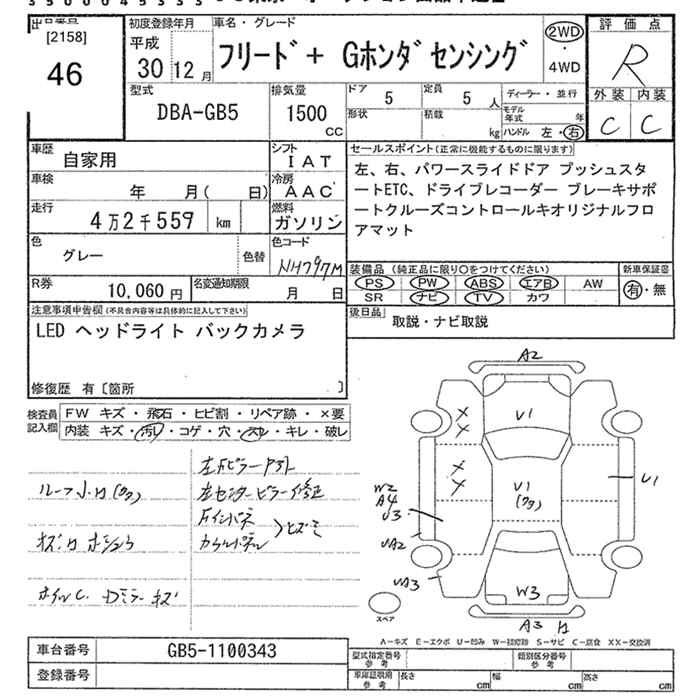 3 5 0 0 0 4 5 3 3 3
[2158]
46
初度登録年月
平成
30年 12月
車名・グレード
フリード+ Gホンダセンシング
2WD
・
4WD
評価点
R
外装 内装
C C
型式
DBA-GB5
排気量
1500
CC
ドア
5
定員
5 人
形状
積載
kg
ディーラー・並行
モデル年式 年
ハンドル 左・右
車歴
自家用
シフト
IAT
車検
年 月( 日)
冷房
AAC
走行
4万2千559 km
燃料
ガソリン
色
グレー
色替
色コード
NH797M
R券
10,060円
名変通知期限
月 日
セールスポイント(正常に機能するものに限ります)
左、右、パワースライドドア プッシュスタ
ートETC、ドライブレコーダー ブレーキサポ
ートクルーズコントロールキオリジナルフロ
アマット
装備品 (純正品に限り○をつけてください)
新車保証書
PS PW ABS エアB AW
有・無
SR ナビ TV カワ
後日品
取説・ナビ取説
注意事項申告欄(不具合内容等は具体的に記入して下さい)
LED ヘッドライト バックカメラ
修復歴 有〔箇所 〕
検査員
記入欄
FW キズ・飛石・ヒビ割・リペア跡・×要
内装 キズ・汚れ・コゲ・穴・・キレ・破レ
左センターピラー修正
A2
U1
U1
U1
W2
A4
U3
UA2
UA3
W3
A3
スペア
A-キズ E-エクボ U-凹み W-補修跡 S-サビ C-腐食 XX-交換済
車台番号
GB5-1100343
登録番号
型式指定番号
参考
類別区分番号
参考
車庫証明用
参考
長さ cm
幅 cm
高さ cm